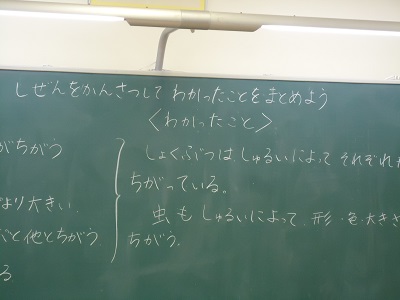 しぜんをかんさつして わかったことをまとめよう
〈わかったこと〉
がちがう
より大きい
と他とちがう
る
しょくぶつは しゅるいによって それぞれ
ちがっている。
虫も しゅるいによって、形・色・大きさ
ちがう。